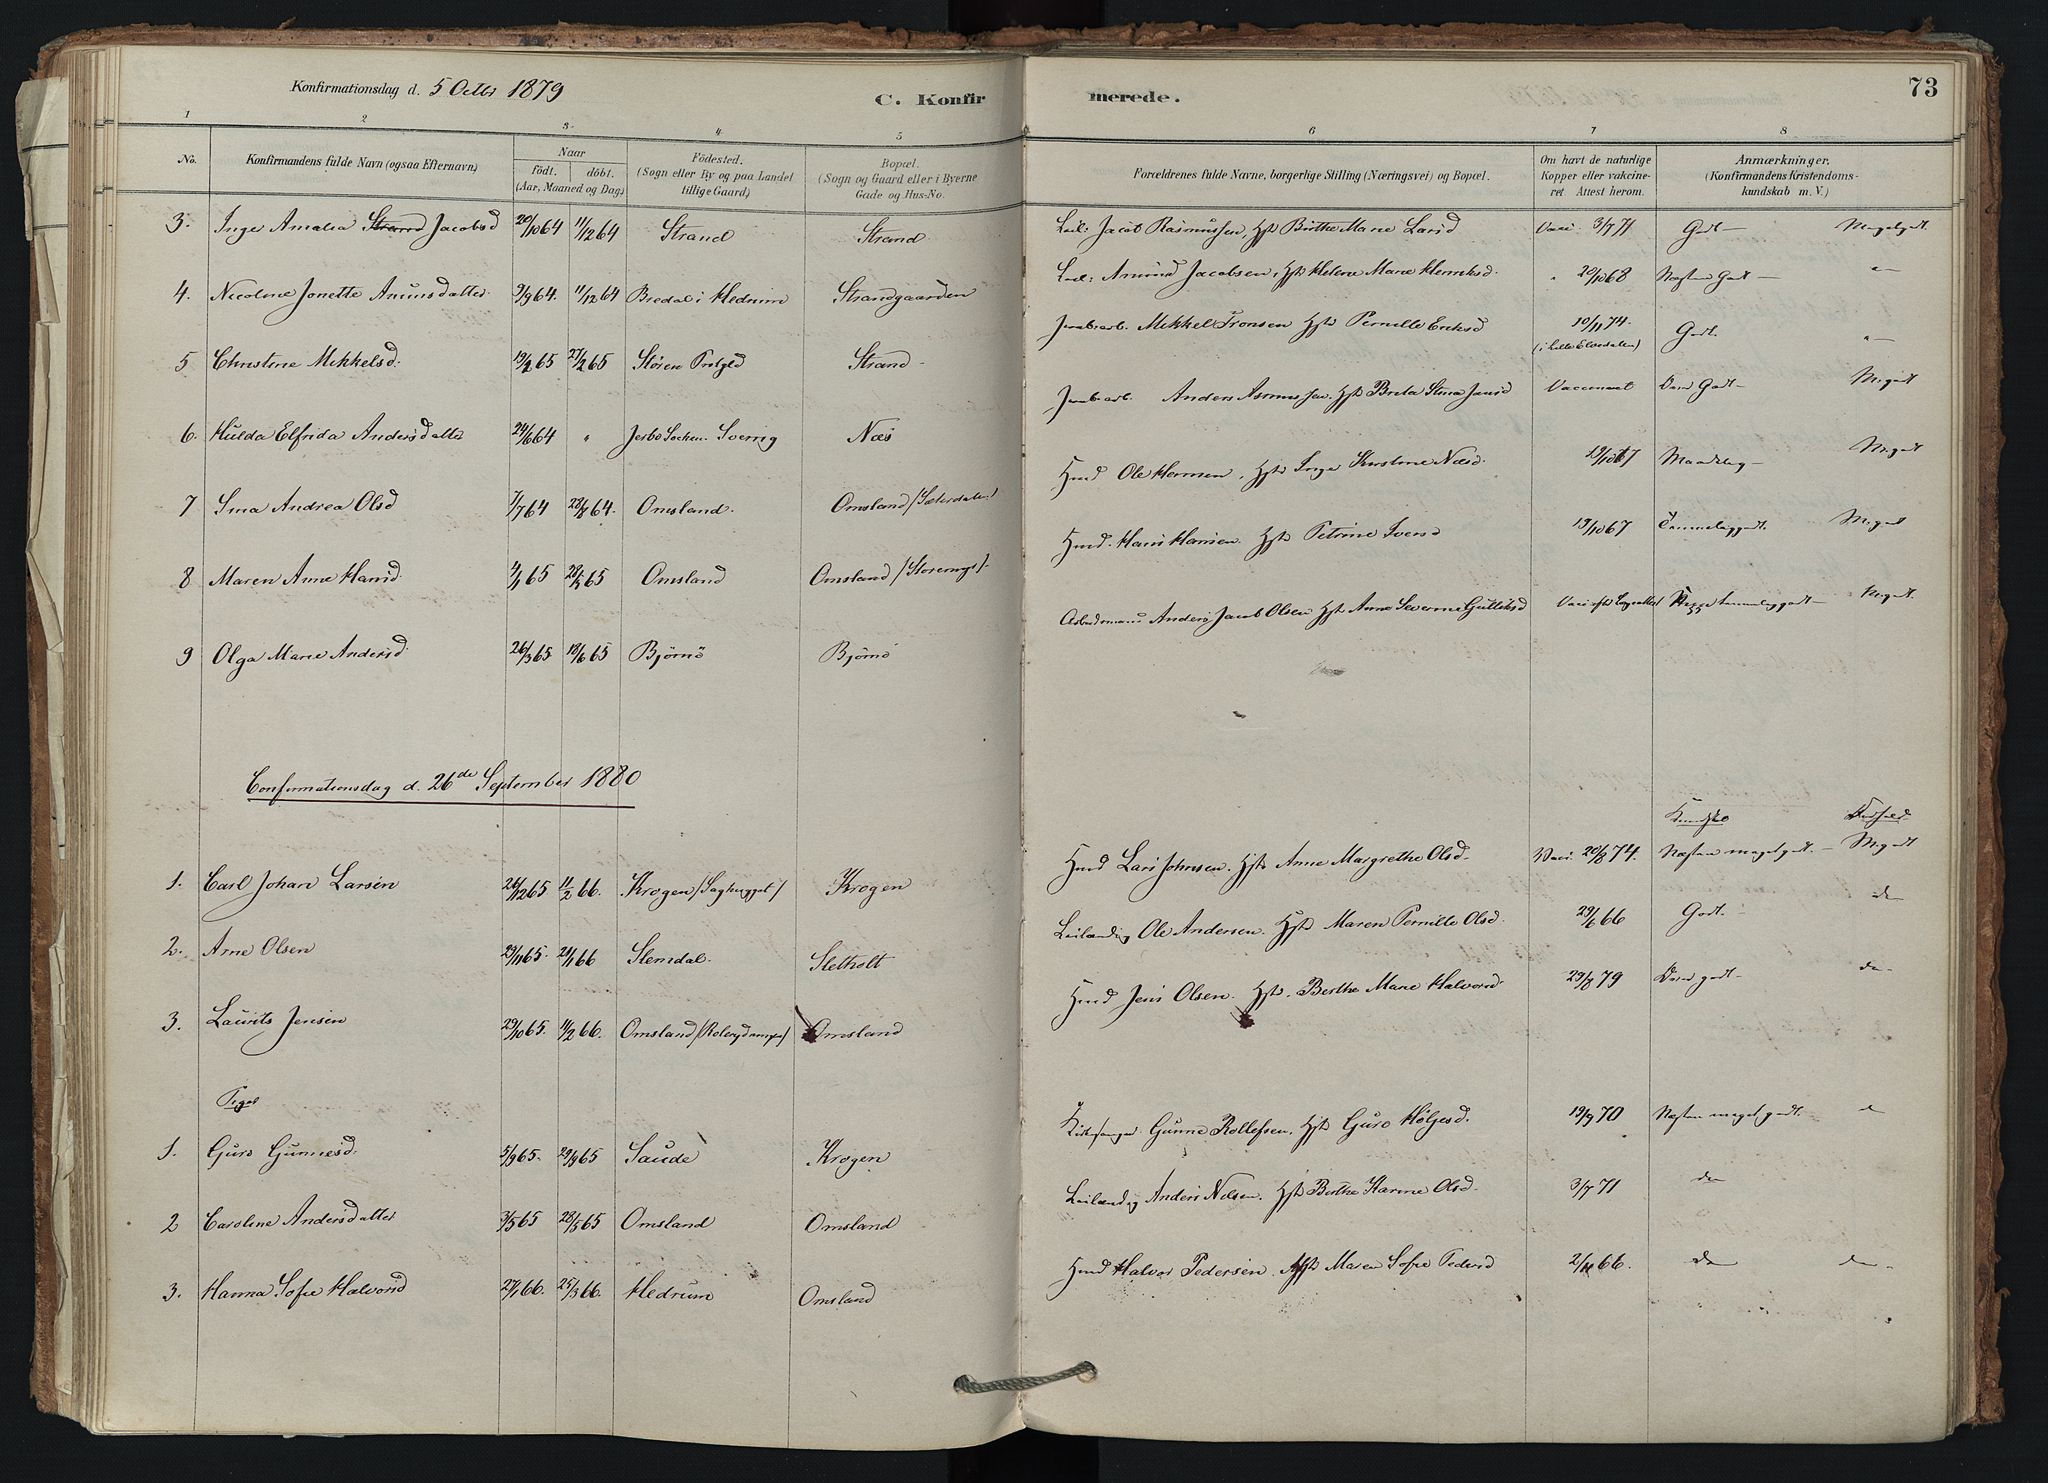 Konfirmationsdag d. 5 Octbr 1879
C. Konfirmerede. 73
1 2 3 4 5 6 7 8
No.
Konfirmandens fulde Navn (ogsaa Efternavn)
Naar
födt. döbt.
(Aar, Maaned og Dag)
Födested.
(Sogn eller By og paa Landet
tillige Gaard)
Bopæl.
(Sogn og Gaard eller i Byerne
Gade og Hus-No.
Forældrenes fulde Navne, borgerlige Stilling (Næringsvei) og Bopæl.
Om havt de naturlige
Kopper eller vakcine-
ret. Attest herom.
Anmærkninger.
(Konfirmandens Kristendoms-
kundskab m. V.)
3. Inge Amalia Strand Jacobsd 20/10 64 11/12 64 Strand Strand Leil: Jacob Rasmussen, Hst Birthe Marie Larsd Vacc. 3/7 71 Godt — Megetgodt
4. Nicoline Jonette Amunsdatter 9/9 64. 11/12 64 Bredal i Hedrum Strandgaarden Leil: Amund Jacobsen, Hst Helene Marie Henriksd. " 20/10 68 Næsten Godt — "—
5 Christine Mikkelsd. 19/2 65 27/2 65 Støren Prstgld Strand Jernbarb. Mikkel Tronsen Hst Pernille Eriksd 10/11 74. (i Lille Elvedalen) Godt. "—
6. Hulda Elfrida Andersdatter 24/6 64 " Jerbo Socken Sverrig Næs Jernbarb. Anders Asmussen. Hst Brita Stina Jansd Vaccineret Mgodt
7 Sina Andrea Olsd 7/7 64 28/8 64. Omsland. Omsland / Sæterdalen / Hmd Ole Hermen, Hst Inge Kirstine Nilsd. 19/10 67 Maadelig — Mgodt
8 Maren Anne Hansd. 4/1 65 28/5 65 Omsland Omsland / Storemyr / Hmd. Hans Hansen. Hst Petrine Iversd 19/10 67 Temmeliggodt. Mgodt
9 Olga Marie Andersd. 26/3 65 18/6 65 Bjørnø Bjørnø Arbeidsmand Anders Jacob Olsen Hst Anne Severine Gulliksd temmeliggodt — Mgodt.
Confirmationsdag d. 26de September 1880
Kundsk Forhold
1. Carl Johan Larsen 26/12 65 11/2 66. Krogen / Saghugget / Krogen Hmd Lars Johnsen. Hst Anne Margrethe Olsd. Vacc. 20/8 74. Næsten megetgodt. — Mgodt
2. Arne Olsen 23/11 65. 21/1 66 Stemdal. Sletholt Leilændig Ole Andersen. Hst Maren Pernille Olsd. 29/6 66 Godt. — do
3. Laurits Jensen 29/10 65. 11/2 66. Omsland Omsland Hmd Jens Olsen. Hst. Berthe Marie Halvorsd. 29/8 79 godt — do
Piger
1. Guro Gunnesd. 5/9 65. 29/9 65 Saude Krogen Kirkesanger Gunne Rollefsen. Hst Guro Hølgesd. 19/9 70 Næsten meget godt. do
2 Caroline Andersdatter 3/5 65 28/5 65 Omsland Omsland Leilændig Anders Nilsen. Hst Berthe Karine Olsd. 3/7 71 do
3. Hanna Sofie Halvorsd 27/1 66. 25/3 66. Hedrum Omsland Hmd Halvor Pedersen. Hst Maren Sofie Pedersd 2/11 66. do do